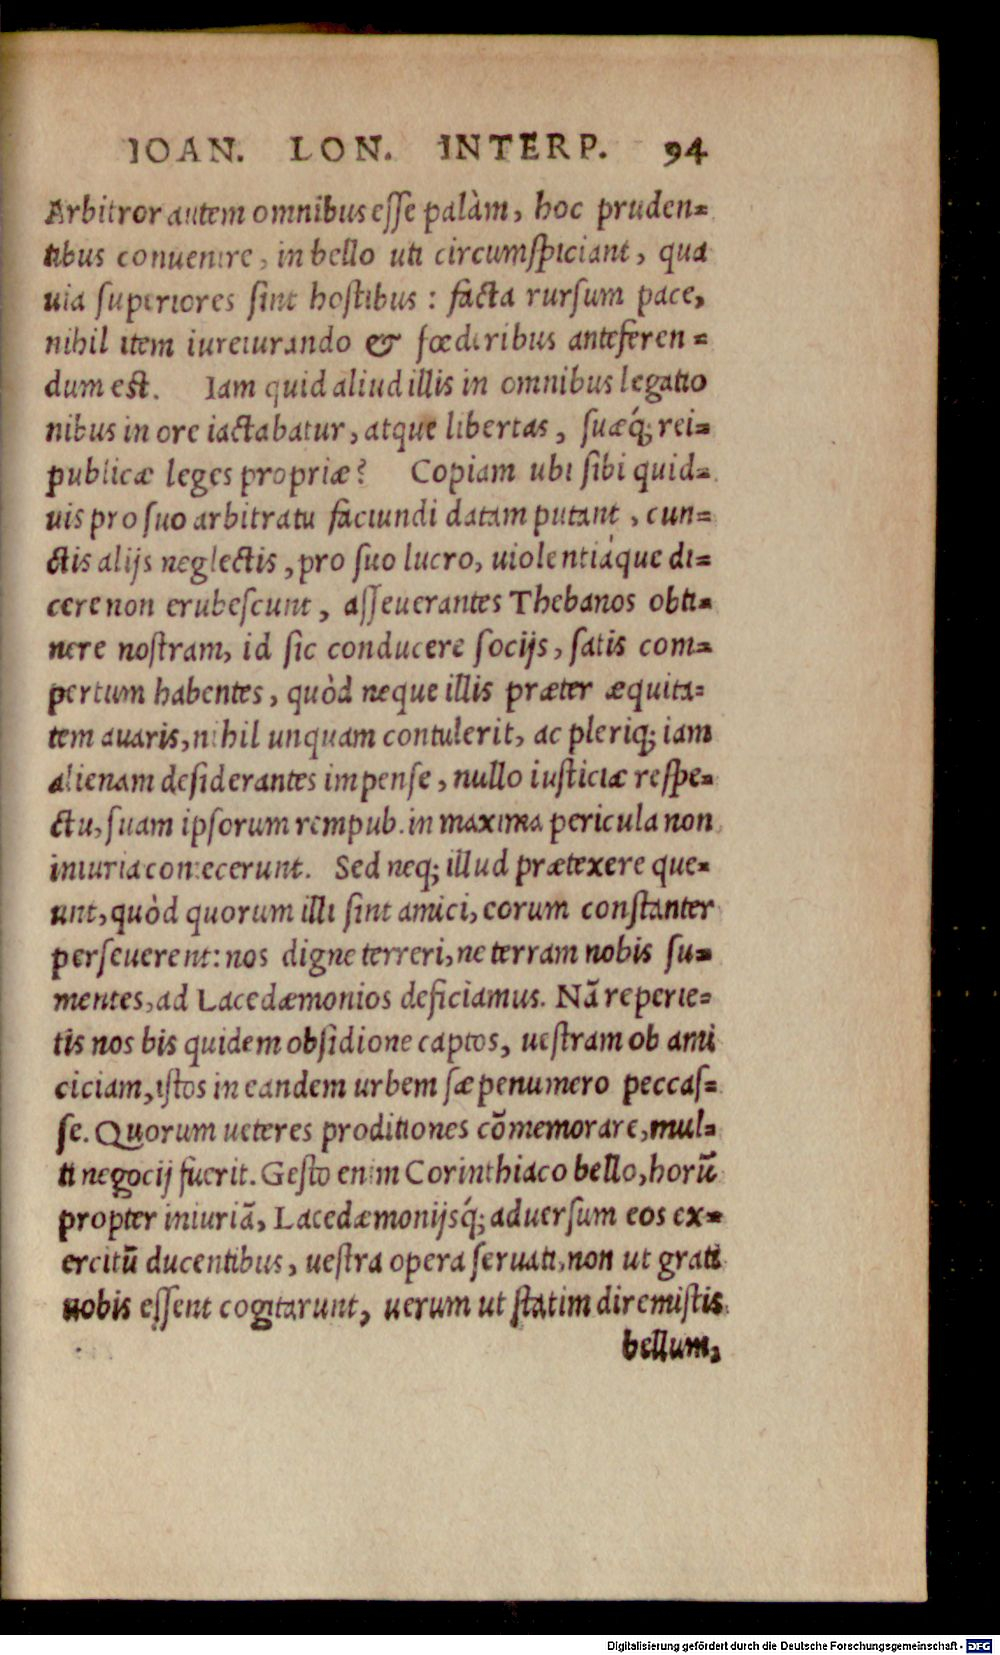 IOAN. LON. INTERP. 94
Arbitror autem omnibus esse palàm, hoc pruden=
tibus conuenire, in bello uti circumspiciant, qua
uia superiores sint hostibus : facta rursum pace,
nihil item iureiurando & fœderibus anteferen=
dum est. Iam quid aliud illis in omnibus legatio
nibus in ore iactabatur, atque libertas, suæq́; rei=
publicæ leges propriæ? Copiam ubi sibi quid=
uis pro suo arbitratu faciundi datam putant, cun=
ctis alijs neglectis, pro suo lucro, uiolentiáque di=
cere non erubescunt, asseuerantes Thebanos obti=
nere nostram, id sic conducere socijs, satis com=
pertum habentes, quòd neque illis præter æquita=
tem auaris, nihil unquam contulerit, ac pleriq; iam
alienam desiderantes impense, nullo iusticiæ respe=
ctu, suam ipsorum rempub. in maxima pericula non
iniuria coniecerunt. Sed neq; illud prætexere que=
unt, quòd quorum illi sint amici, eorum constanter
perseuerent: nos digne terreri, ne terram nobis su=
mentes, ad Lacedæmonios deficiamus. Nā reperie=
tis nos bis quidem obsidione captos, uestram ob ami
ciciam, istos in eandem urbem sæpenumero peccas=
se. Quorum ueteres proditiones cōmemorare, mul=
ti negocij fuerit. Gesto enim Corinthiaco bello, horū
propter iniuriā, Lacedæmonijsq́; aduersum eos ex=
ercitū ducentibus, uestra opera seruati, non ut grati
nobis essent cogitarunt, uerum ut statim diremistis
bellum,
Digitalisierung gefördert durch die Deutsche Forschungsgemeinschaft - DFG